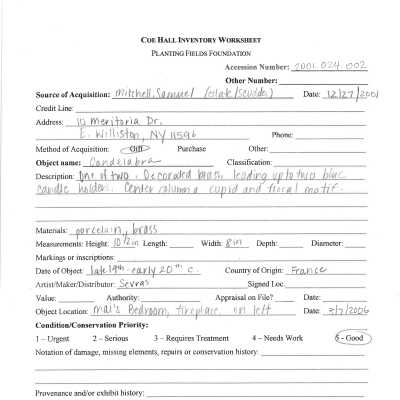 COE HALL INVENTORY WORKSHEET
PLANTING FIELDS FOUNDATION
Accession Number: 2001.024.002
Other Number:
Source of Acquisition: Mitchell, Samuel (State/Scudder) Date: 12/27/2001
Credit Line:
Address: 10 Meritoria Dr.
E. Williston, NY 11596 Phone:
Method of Acquisition: Gift Purchase Other:
Object name: Candelabra Classification:
Description: One of two. Decorated brass leading up to two blue
candle holders. Center column a cupid and floral motif.
Materials: porcelain, brass
Measurements: Height: 10 1/2 in Length: Width: 8 in Depth: Diameter:
Markings or inscriptions:
Date of Object: late 19th - early 20th c. Country of Origin: France
Artist/Maker/Distributor: Sevres Signed Loc.
Value: Authority: Appraisal on File? Date:
Object Location: Mai's Bedroom, fireplace on left Date: 3/7/2006
Condition/Conservation Priority:
1 – Urgent 2 – Serious 3 – Requires Treatment 4 – Needs Work 5 - Good
Notation of damage, missing elements, repairs or conservation history:
Provenance and/or exhibit history: